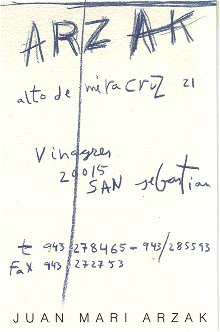 ARZAK
alto de miracruz 21
Vinagres
20015
SAN sebastian
t 943 278465 - 943/285593
Fax 943 272753
JUAN MARI ARZAK